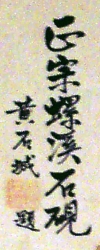 正宗螺溪石硯
黃石城題